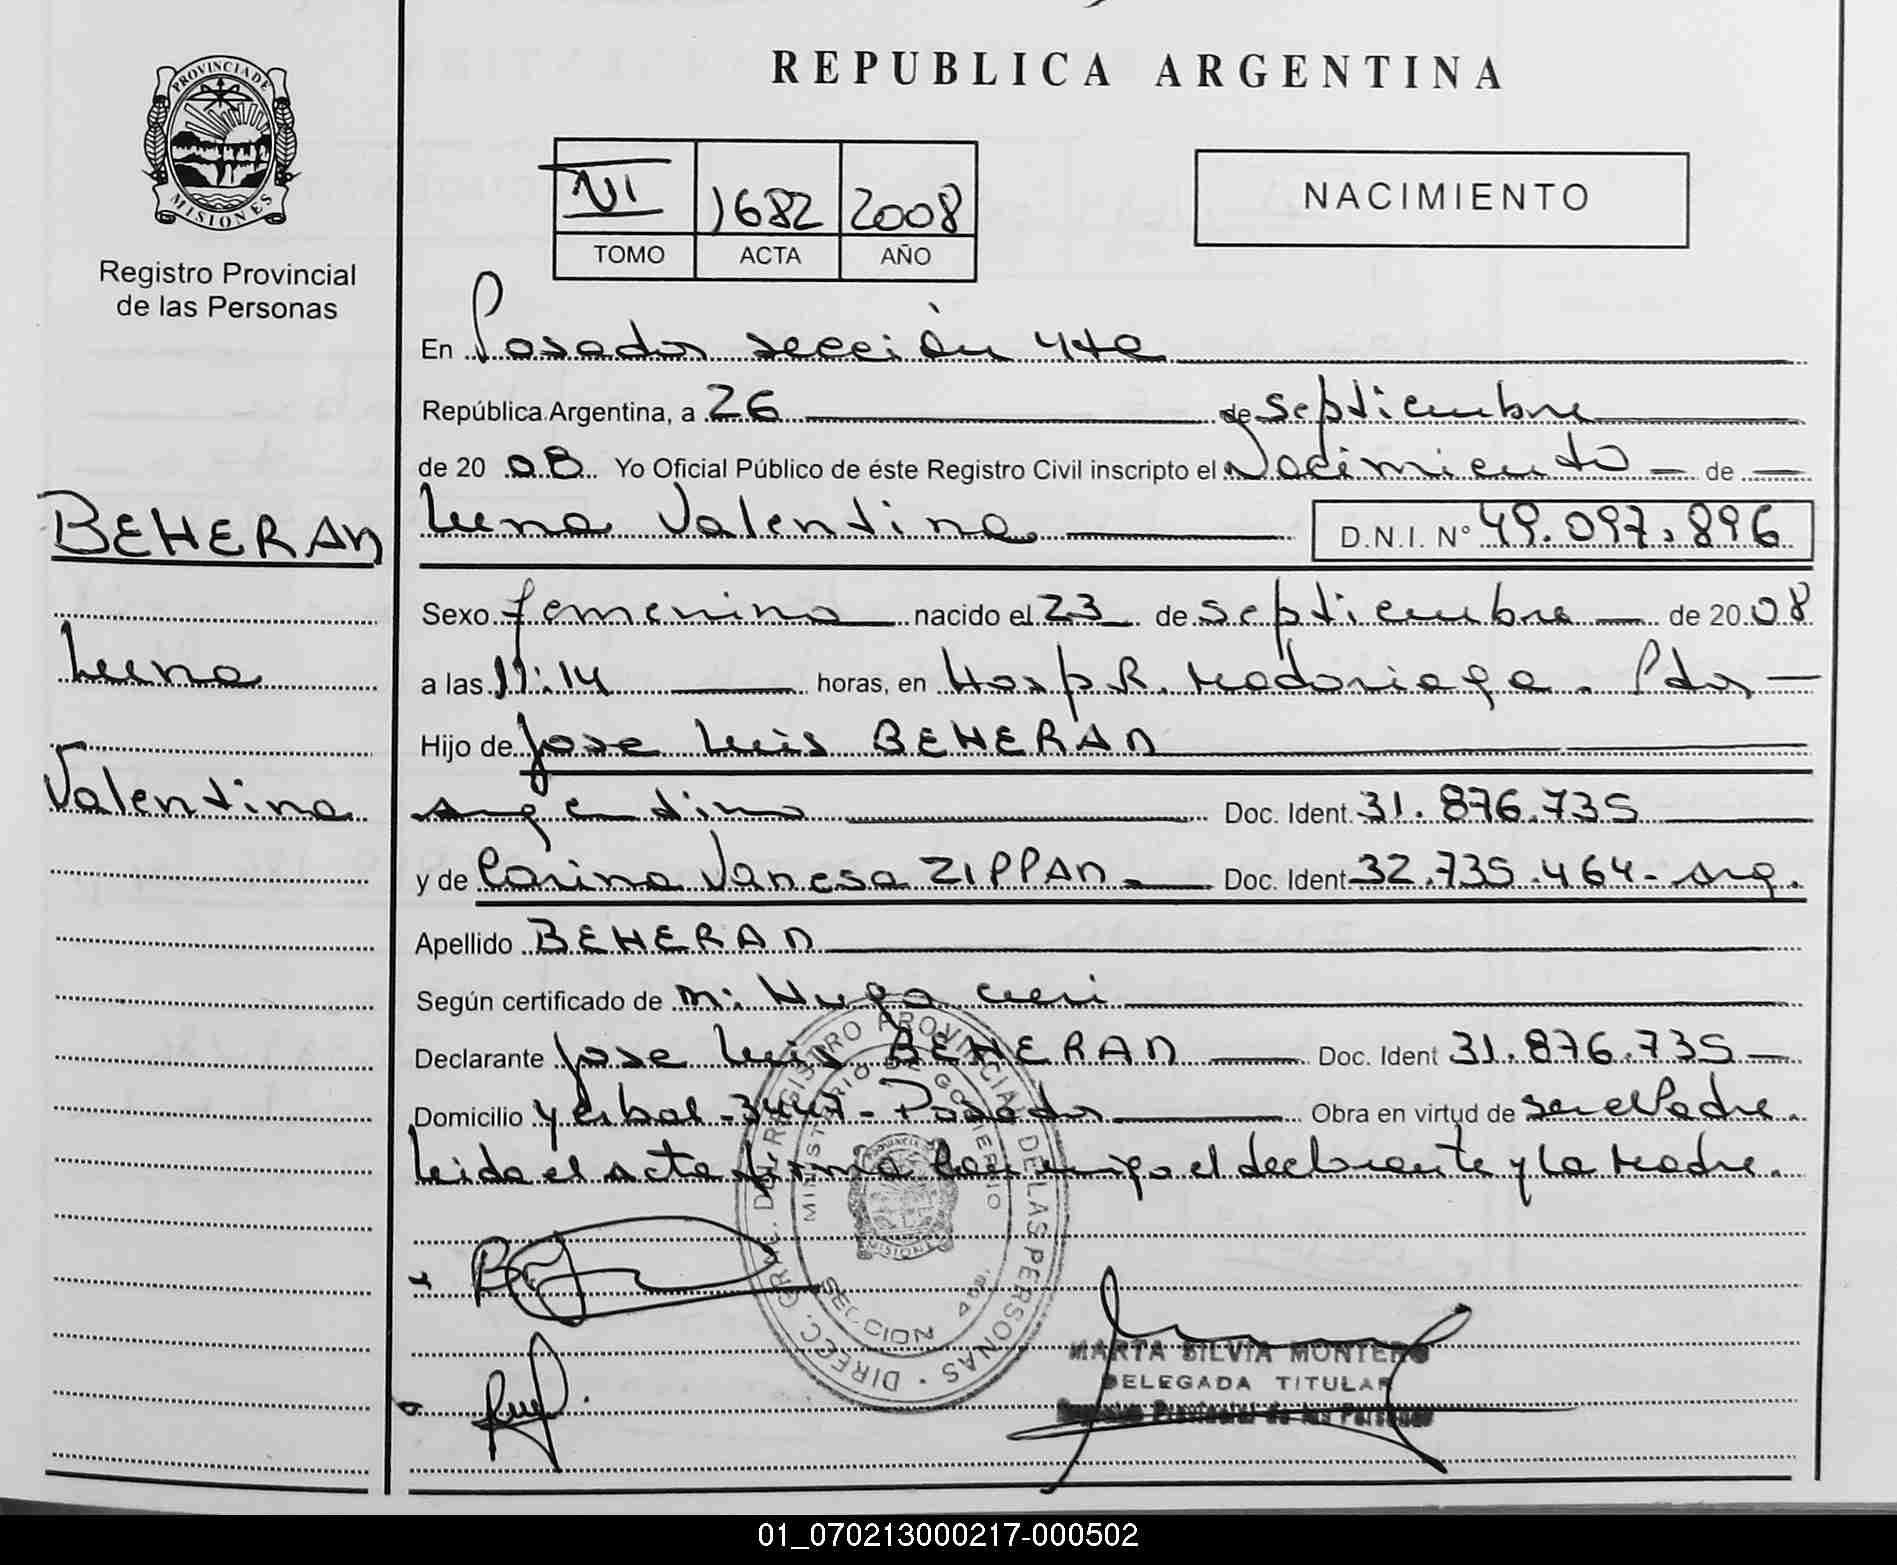 PROVINCIA DE
MISIONES
Registro Provincial
de las Personas
BEHERAN
Luna
Valentina
REPUBLICA ARGENTINA
VI 1682 2008
TOMO ACTA AÑO
NACIMIENTO
En Posadas sección 4ta
República Argentina, a 26 de septiembre
de 20 08 Yo Oficial Público de éste Registro Civil inscripto el Nacimiento de
Luna Valentina D.N.I. Nº 49.097.896
Sexo femenino nacido el 23 de septiembre de 20 08
a las 11:14 horas, en Hosp R. Madariaga. Pdas
Hijo de Jose Luis BEHERAN
argentino Doc. Ident. 31.876.735
y de Carina Vanesa ZIPPAN Doc. Ident 32.735.464- arg.
Apellido BEHERAN
Según certificado de m: Hugo
Declarante Jose Luis BEHERAN Doc. Ident 31.876.735
Domicilio Yerbal - 3447 - Posadas Obra en virtud de ser el Padre.
Leida el acta firma conmigo el declarante y la Madre.
DIREC. GRAL. DE REGISTRO PROVINCIAL DE LAS PERSONAS
MINISTERIO DE GOBIERNO
PROVINCIA
MISIONES
SECCION 4ta.
MARTA SILVIA MONTERO
DELEGADA TITULAR
Registro Provincial de las Personas
01_070213000217-000502